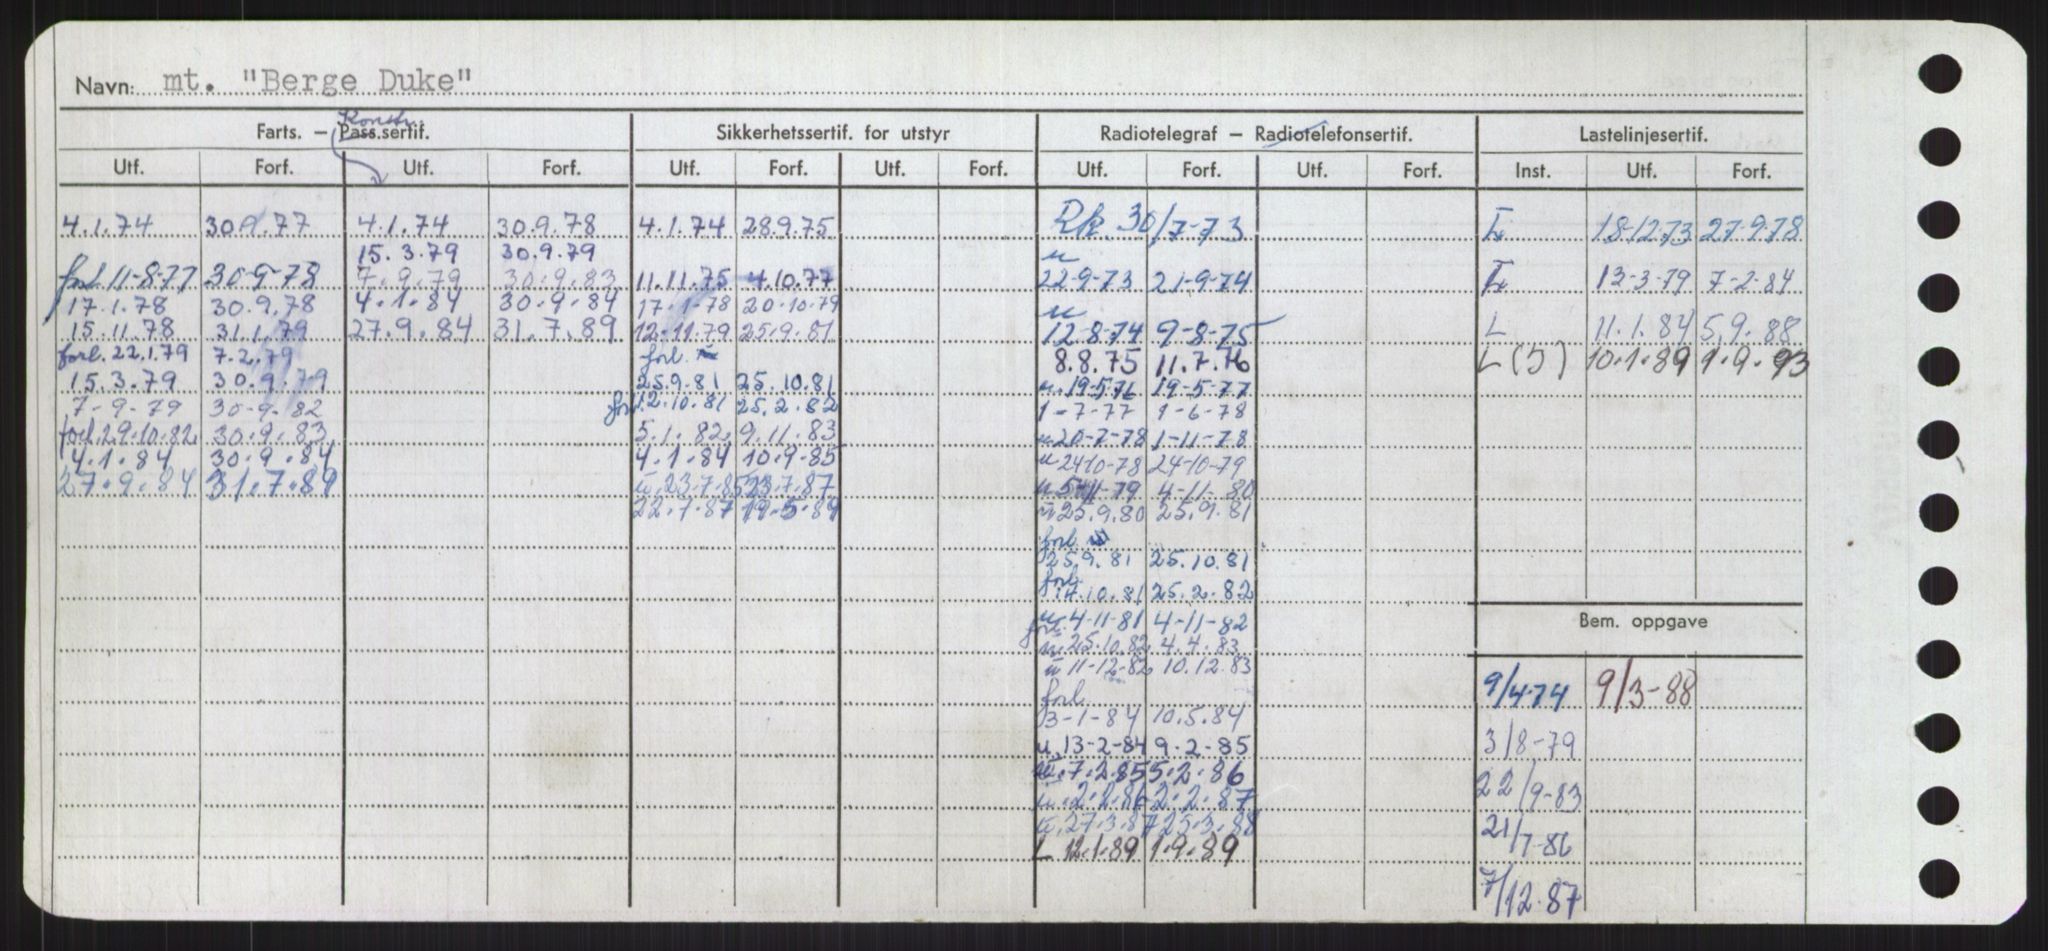 Navn: mt. "Berge Duke"
Konstr.
Farts. – Pass.sertif. Sikkerhetssertif. for utstyr Radiotelegraf – Radiotelefonsertif. Lastelinjesertif.
Utf. Forf. Utf. Forf. Utf. Forf. Utf. Forf. Utf. Forf. Utf. Forf. Inst. Utf. Forf.
4.1.74 30.9.77
forl. 11-8-77 30-9-78
17.1.78 30.9.78
15.11.78 31.1.79
forl. 22.1.79 7.2.79
15.3.79 30.9.79
7-9-79 30-9-82
forl. 29.10.82 30.9.83
4.1.84 30.9.84
27.9.84 31.7.89
4.1.74 30.9.78
15.3.79 30.9.79
7.9.79 30.9.83
4.1.84 30.9.84
27.9.84 31.7.89
4.1.74 28.9.75
11.11.75 4.10.77
17.1.78 20.10.79
12-11.79 25.9.81
forl.
25.9.81 25.10.81
forl. 12.10.81 25.2.82
5.1.82 9.11.83
4.1.84 10.9.85
u. 23.7.85 23.7.87
22.7.87 19.5.89
Rk. 30/7-73
u
22-9-73 21-9-74
u
12-8-74 9-8-75
8.8.75 11.7.76
u 19-5-76 19-5-77
1-7-77 1-6-78
u 20-7-78 1-11-78
u 24-10-78 24-10-79
u 5-11-79 4-11-80
u 25.9.80 25.9.81
forl.
25.9.81 25.10.81
forl.
17.10.81 25.2.82
u 4-11-81 4-11-82
forl.
u 25.10.82 4.4.83
u 11-12-82 10.12.83
forl.
3-1-84 10.5.84
u. 13-2-84 9-2-85
u. 7.2.85 5.2.86
u. 2.2.86 2.2.87
u. 27.3.87 25.3.88
L 12.1.89 1.9.89
L 18-12-73 27-9-78
L 13-3-79 7-2-84
L 11.1.84 5.9.88
L (J) 10.1.89 1.9.93
Bem. oppgave
9/4-74 9/3-88
3/8-79
22/9-83
21/7-86
7/12-87